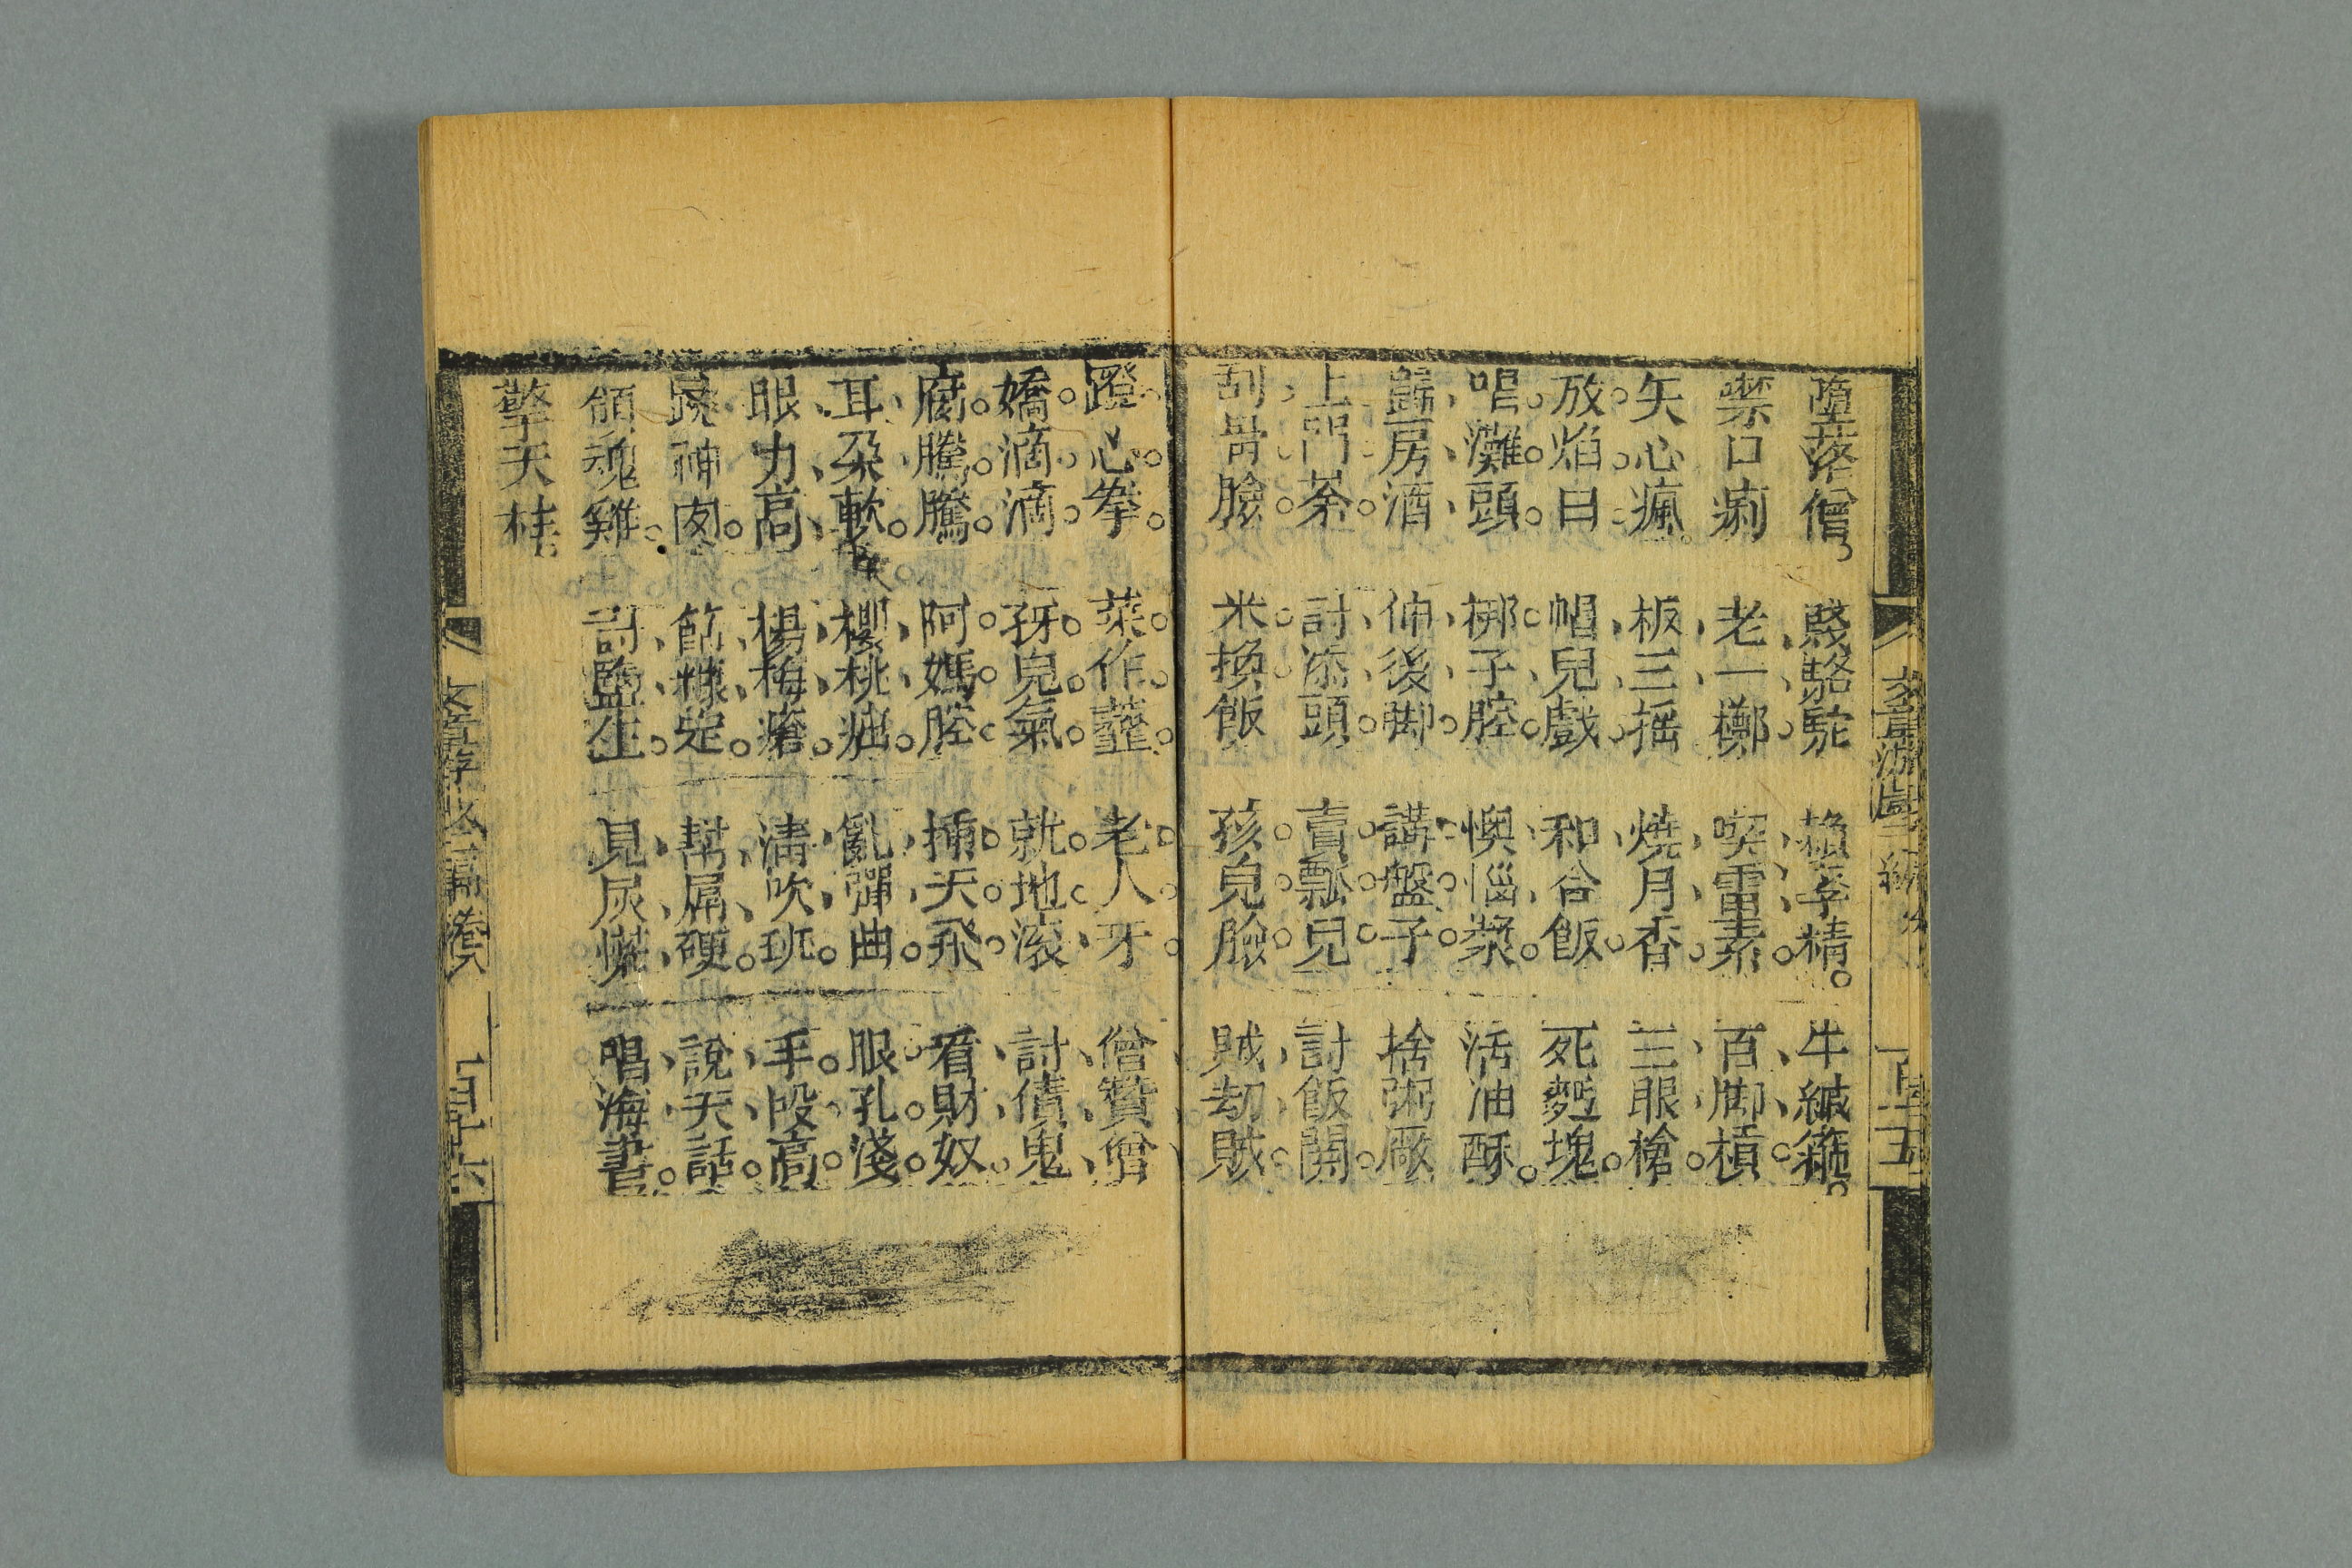 墮落僧。 駱駝 精。 牛
禁口痢 老一鄉 喫雷素。 百脚槓
矢心瘋。 板三搖 燒月香。 三眼槍
放焰口 唱兒戲 和合飯。 死麫塊
唱灘頭 梆子腔 懊惱漿 活油酥
歸房酒 伸後脚 講盤子 捨粥厰
上門茶 討添頭 賣瓢兒 討飯開
刮骨臉 米換飯 孩兒臉 賊刧賊
蹬心拳 菜作虀 老人牙 僧贊僧
嬌滴滴 孩兒氣 就地滚 討債鬼
腐騰騰 阿媽腔 插天飛 看財奴
耳朶軟 櫻桃 亂彈曲 眼孔淺
眼力高 楊梅瘡 清吹班 手段高
神 幫屌硬 說天話
領魂雞 討監生 見尿 唱海書
擎天柱。
文章游戲三編
百十五
百十六